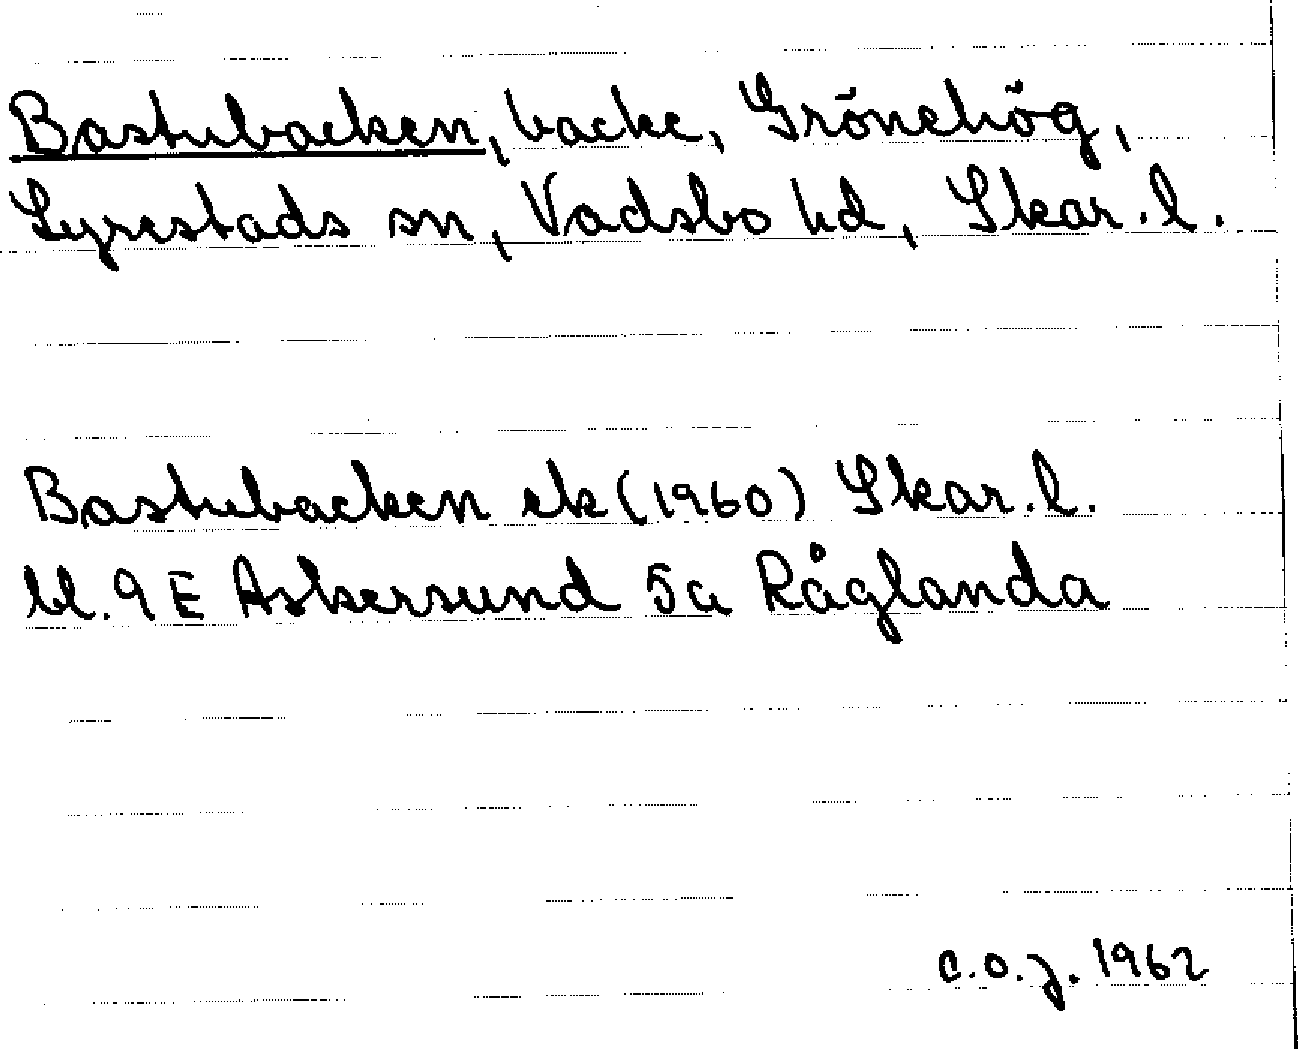 Bastubacken, backe, Grönehög,
Lyrestads sn, Vadsbo hd, Skar. l.
Bastubacken ek (1960) Skar. l.
bl. 9 E Askersund 5a Råglanda
C.O.J. 1962